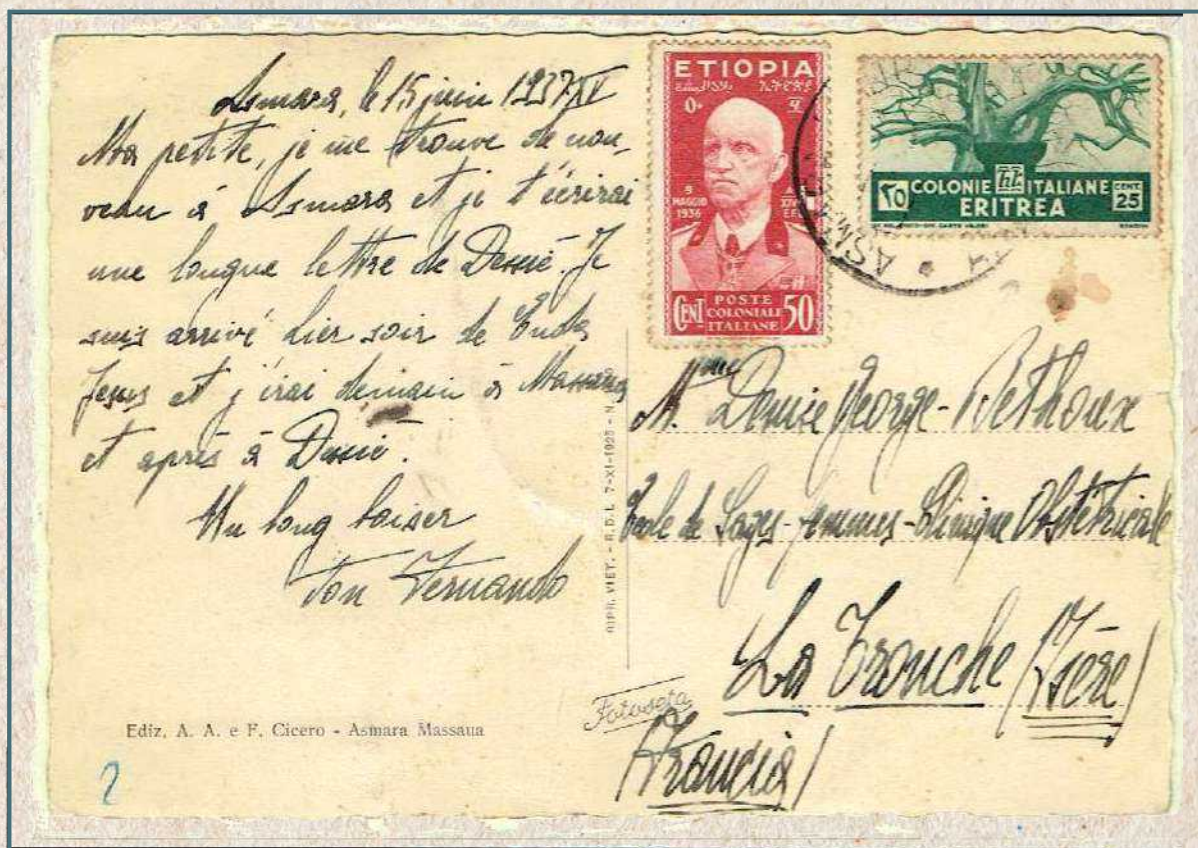 Asmara, le 15 juin 1937 XV
Ma petite, je me trouve de nou-
veau à Asmara et je t'écrirai
une longue lettre de Dessié. Je
suis arrivé hier soir de Enda
Jesus et j'irai demain à Massaua
et après à Dessié.
Un long baiser
Ton Fernando
Ediz. A. A. e F. Cicero - Asmara Massaua
2
RIPR. VIET. - R.D.L. 7-XI-1925 - N.
Fotoseta
ETIOPIA
9
MAGGIO
1936
XIV
E.F.
CENT POSTE 50
COLONIALE
ITALIANE
COLONIE ITALIANE
٢٥ ERITREA CENT 25
ASM
Mme Denise George-Bethoux
Ecole de Sages-femmes-Clinique Obstétricale
La Tronche (Isère)
(Francia)